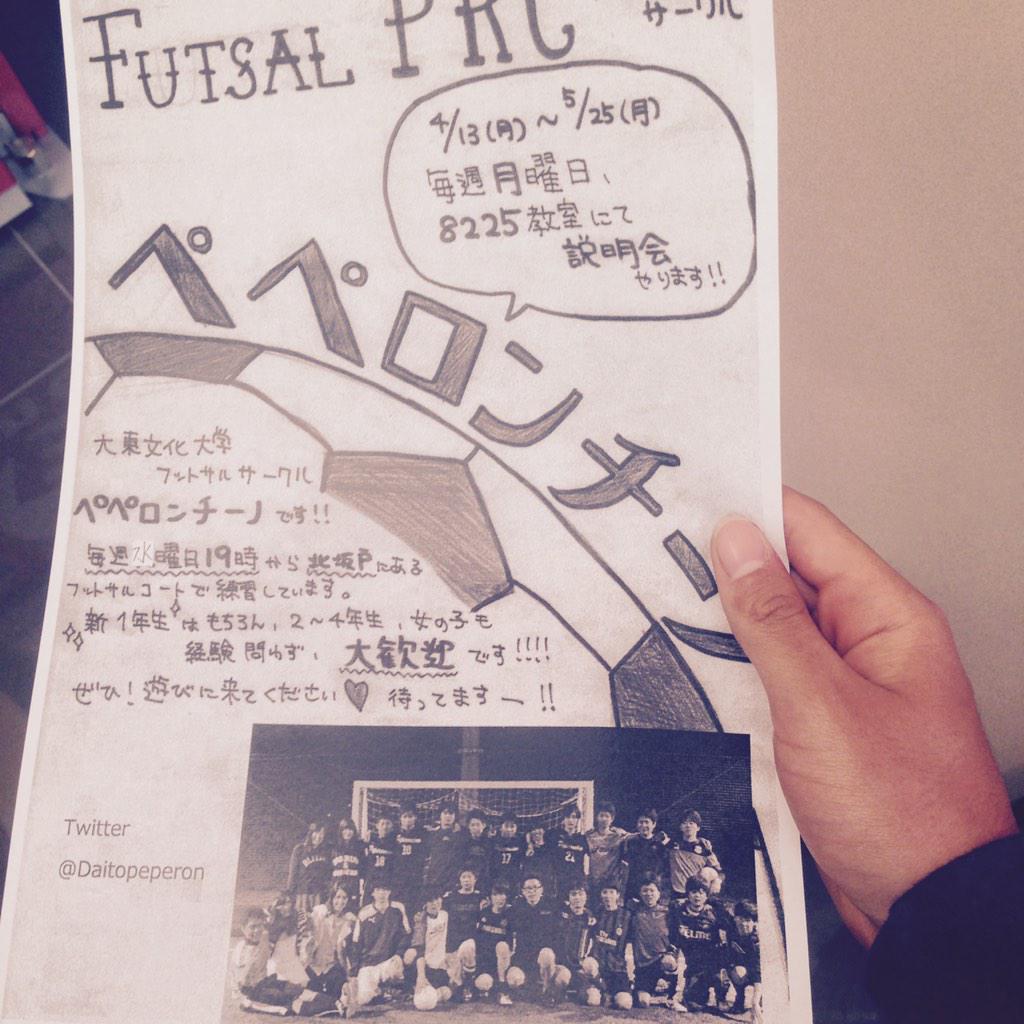 FUTSAL PRC
サークル
4/13(月)～5/25(月)
毎週月曜日、
8225教室にて
説明会
やります!!
ペペロンチーノ
大東文化大学
フットサルサークル
ペペロンチーノです!!
毎週水曜日19時から北坂戸にある
フットサルコートで練習しています。
新1年生はもちろん、2～4年生、女の子も
経験問わず、大歓迎です!!!!
ぜひ!遊びに来てください♥ 待ってますー!!
Twitter
@Daitopeperon